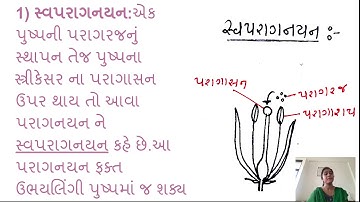 1) સ્વપરાગનયન:એક
પુષ્પની પરાગરજનું
સ્થાપન તેજ પુષ્પના
સ્ત્રીકેસર ના પરાગાસન
ઉપર થાય તો આવા
પરાગનયન ને
સ્વપરાગનયન કહે છે.આ
પરાગનયન ફક્ત
ઉભયલિંગી પુષ્પમાં જ શક્ય
સ્વપરાગનયન :-
પરાગાસન
પરાગરજ
પરાગાશય